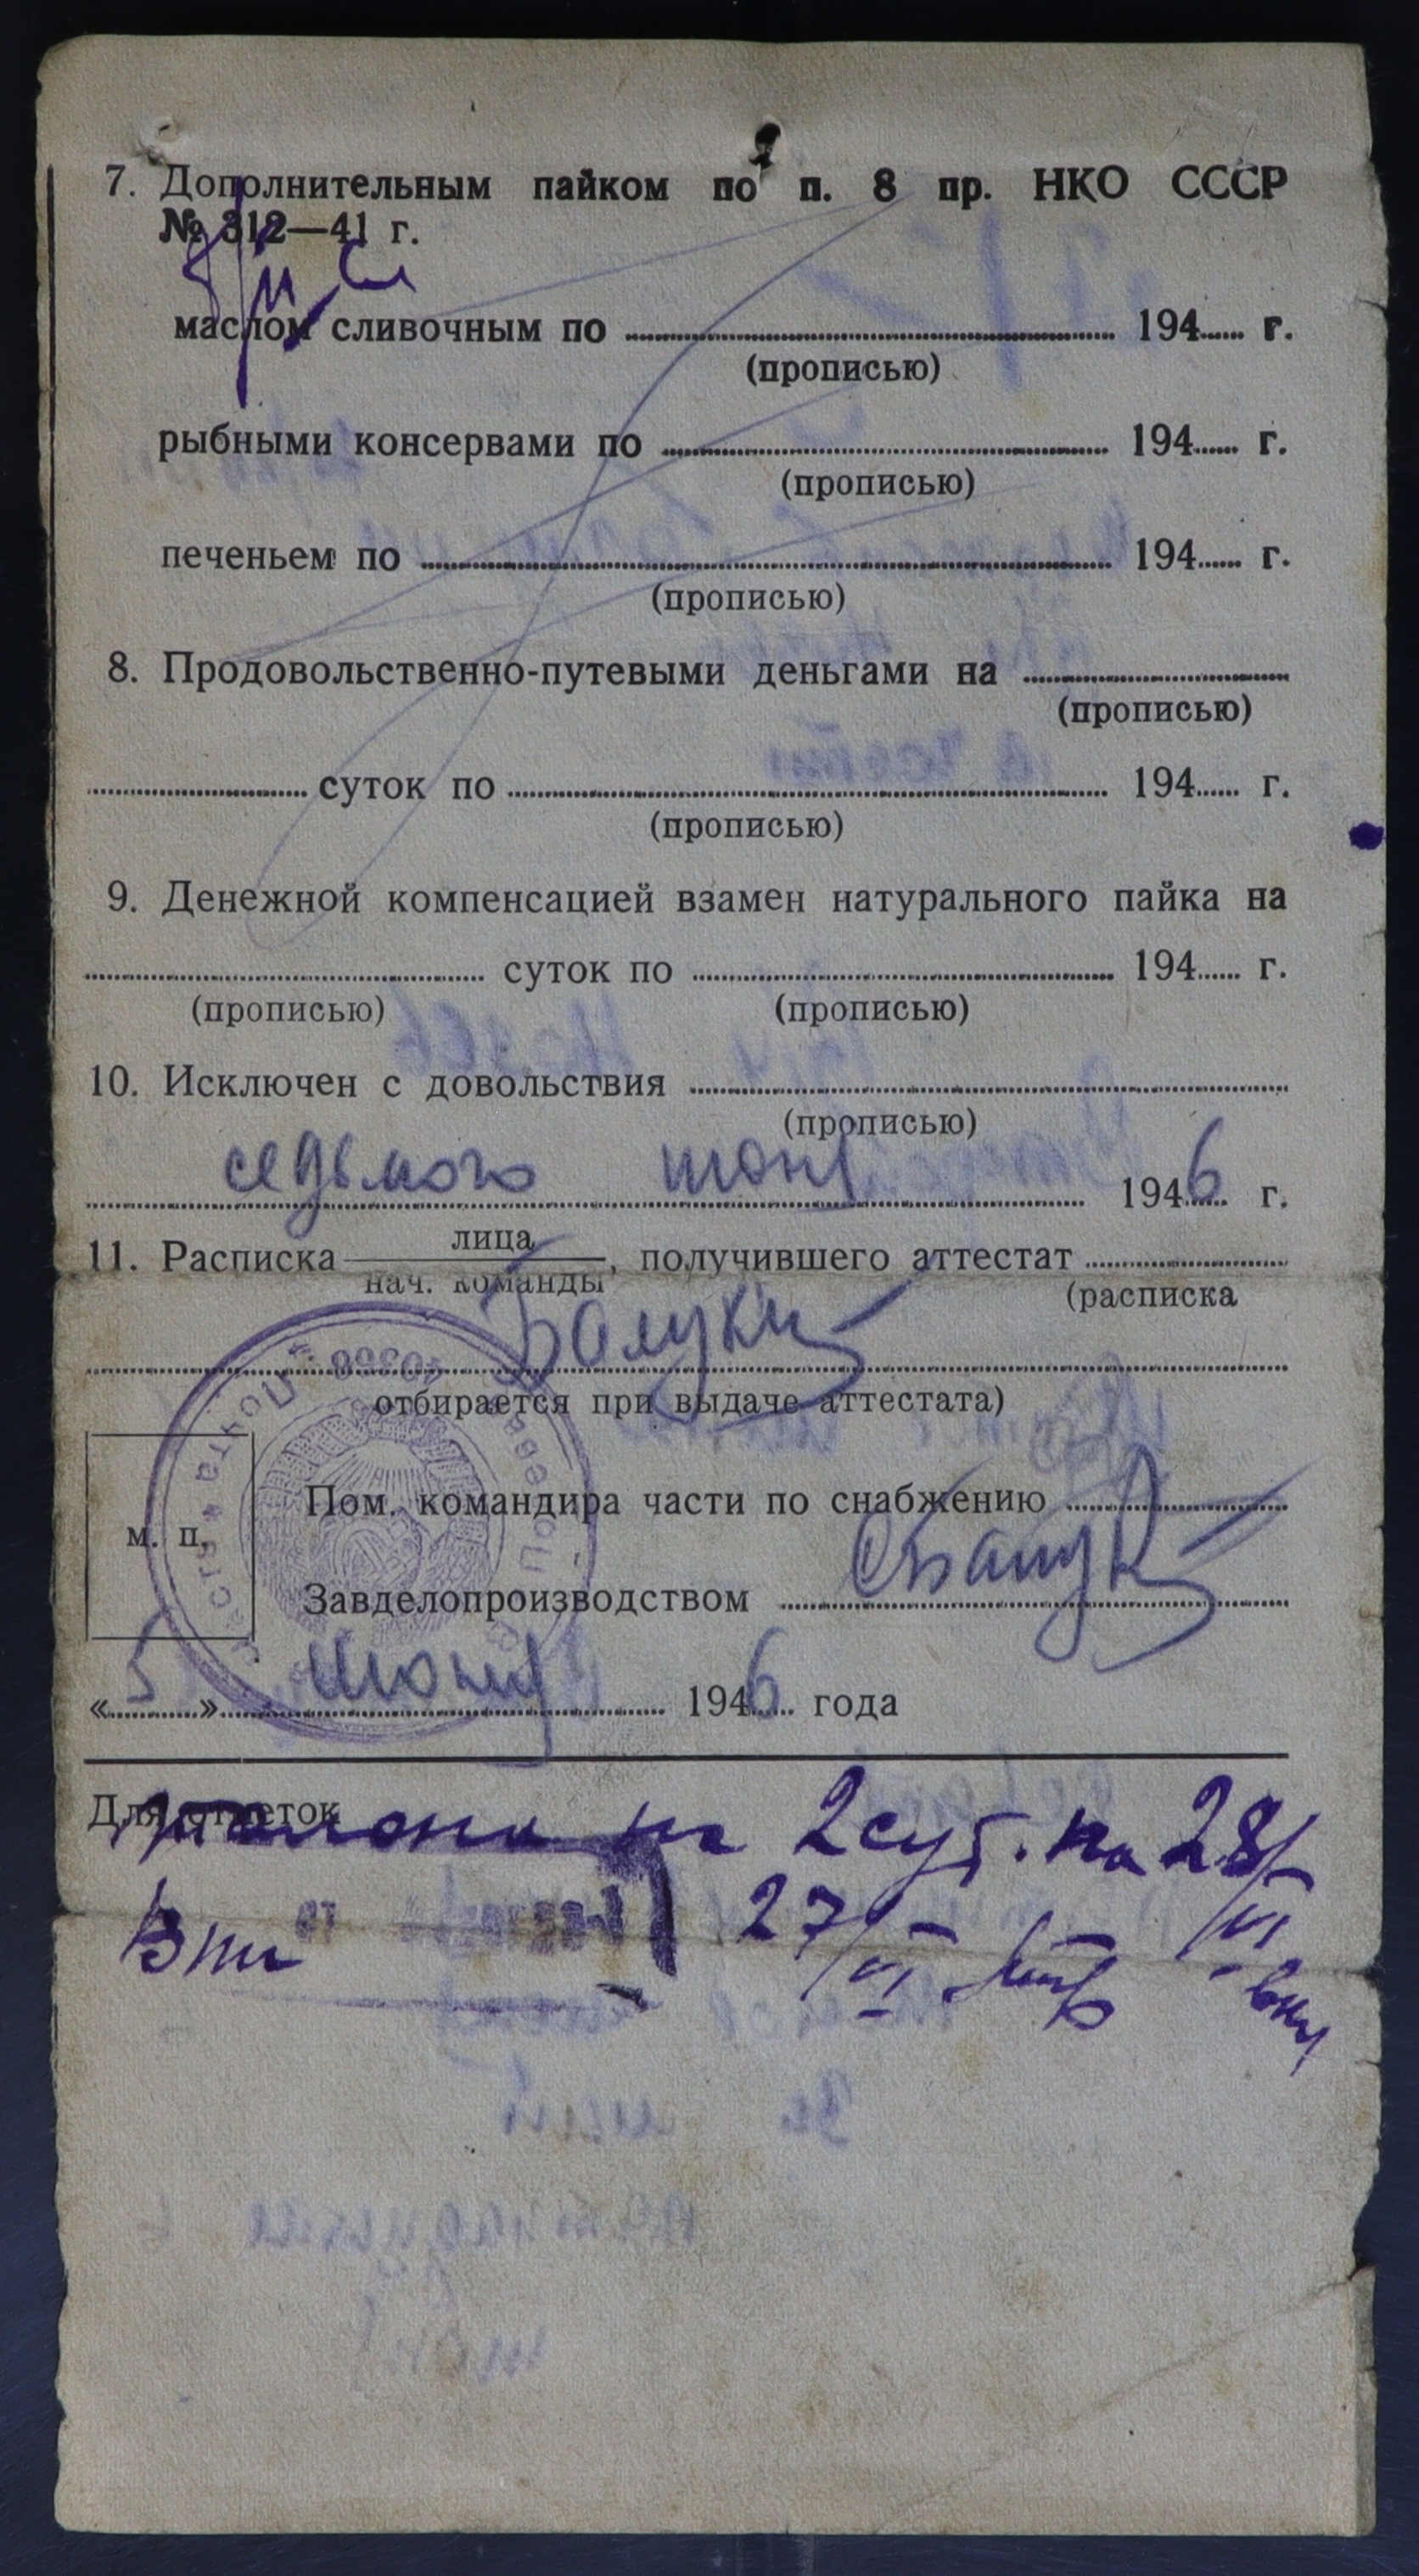 7. Дополнительным пайком по п. 8 пр. НКО СССР
№ 312—41 г.
маслом сливочным по 194 г.
(прописью)
рыбными консервами по 194 г.
(прописью)
печеньем по 194 г.
(прописью)
8. Продовольственно-путевыми деньгами на
(прописью)
суток по 194 г.
(прописью)
9. Денежной компенсацией взамен натурального пайка на
суток по 194 г.
(прописью) (прописью)
10. Исключен с довольствия
(прописью)
седьмого июня 1946 г.
11. Расписка лица
нач. команды, получившего аттестат
(расписка
отбирается при выдаче аттестата)
Пом. командира части по снабжению
м. п.
Завделопроизводством
«5» июня 1946 года
Для отметок
талоны на 2 сут. на 28/VI
27/VI